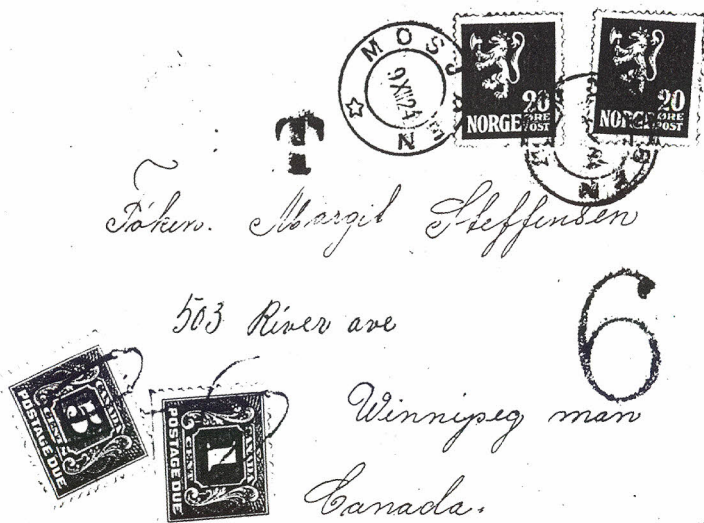 MOSJØEN
9 XII 24
20
ØRE
NORGE POST
20
ØRE
NORGE POST
T
Frøken. Margit Steffensen
503 River ave
6
Winnipeg man
Canada.
CANADA
5
CENTS
POSTAGE DUE
CANADA
1
CENT
POSTAGE DUE